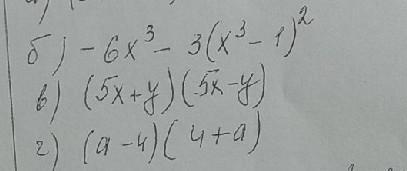 б) -6x³ - 3(x³ - 1)²
в) (5x+y)(5x-y)
г) (a-4)(4+a)